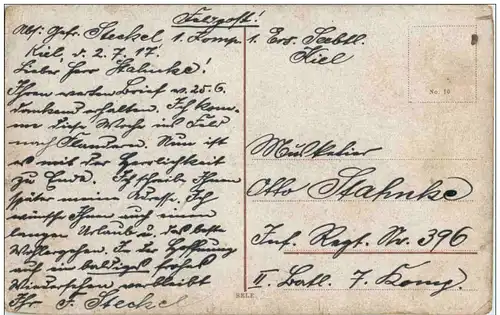 Feldpost!
Abs. Gefr. Steckel 1. Komp. 1. Ers. Seebtl.
Kiel
Kiel, d. 2.7.17.
Lieber Herr Stahnke!
Ihren werten Brief v. 25.6.
dankend erhalten. Ich kom-
me diese Woche ins Feld
nach Flandern. Nun ist
es mit der Herrlichkeit
zu Ende. Ich schreib Ihnen
später meine Adresse. Ich
wünsche Ihnen auch einen
langen Urlaub u. das beste
Wohlergehen. In der Hoffnung
auf ein baldiges frohes
Wiedersehen verbleibt
Ihr F. Steckel
No. 16
Musketier
Otto Stahnke
Inf. Regt. Nr. 396
II. Batl. 7. Komp.